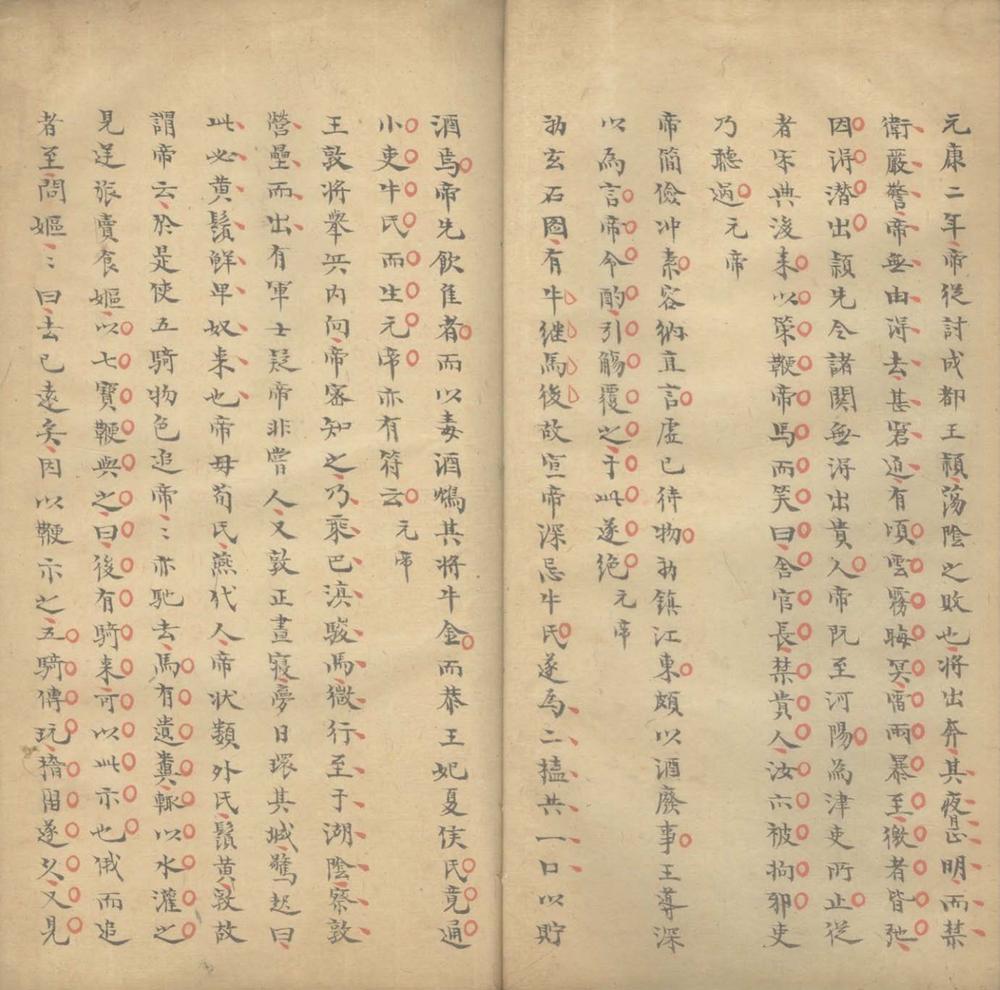 元康二年帝從討成都王穎蕩陰之敗也將出奔其夜月正明而禁
衛嚴警帝無由得去甚窘迫有頃雲霧晦冥雷雨暴至徼者皆弛
因得潛出穎先令諸関無得出貴人帝既至河陽為津吏所止從
者宋典後来以策鞭帝馬而笑曰舍官長禁貴人汝亦被拘邪吏
乃聽過元帝
帝簡儉冲素容納直言虛已待物初鎮江東頗以酒廢事王導深
以為言帝令酌引觴覆之于此遂絶元帝
初玄石圖有牛継馬後故宣帝深忌牛氏遂為二榼共一口以貯
酒焉帝先飲佳者而以毒酒鴆其将牛金而恭王妃夏侯氏竟通
小吏牛氏而生元帝亦有符云元帝
王敦将舉兵内向帝宻知之乃乘巴滇駿馬微行至于湖陰察敦
營壘而出有軍士疑帝非嘗人又敦正晝寝夢日環其城驚起曰
此必黄鬚鮮卑奴来也帝母荀氏燕代人帝状類外氏鬚黄敦故
謂帝云於是使五騎物色追帝〻亦馳去馬有遺糞輒以水灌之
見逆旅賣食嫗以七寶鞭與之曰後有騎来可以此示也俄而追
者至問嫗〻曰去已遠矣因以鞭示之五騎傳玩稽留遂久又見